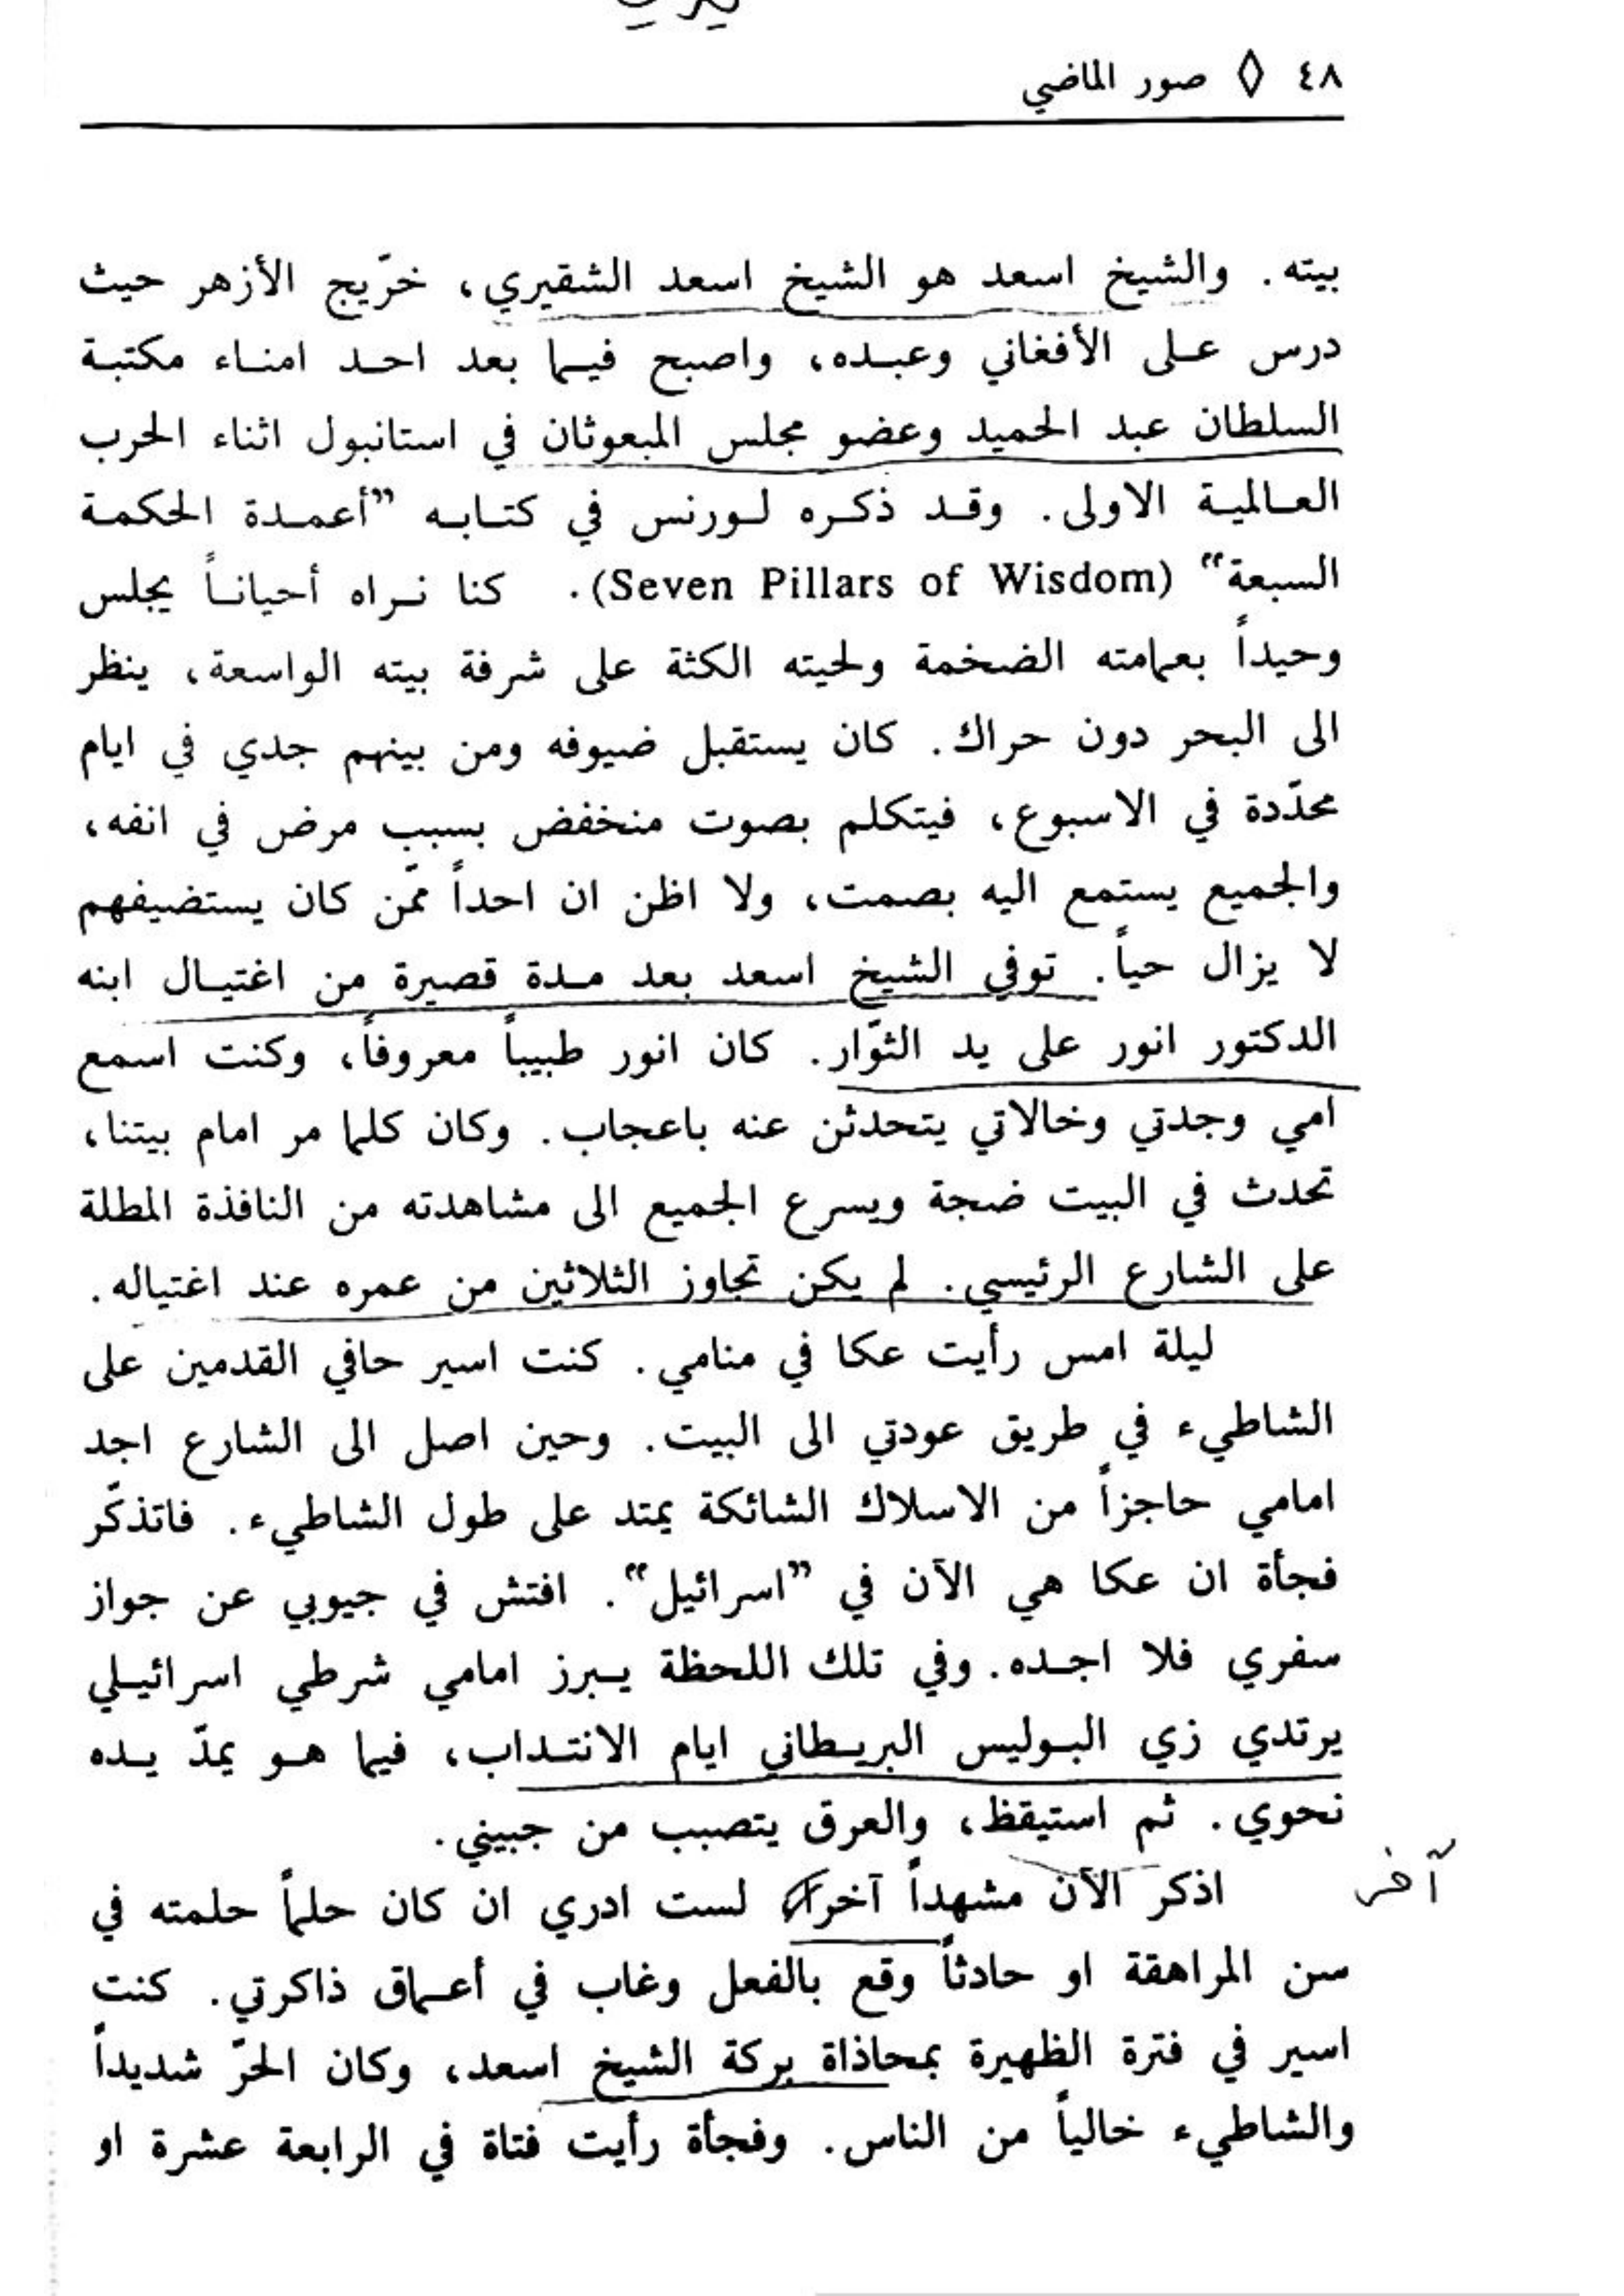 ٤٨ ◊ صور الماضي
بيته. والشيخ اسعد هو الشيخ اسعد الشقيري، خرّيج الأزهر حيث
درس على الأفغاني وعبده، واصبح فيما بعد احد امناء مكتبة
السلطان عبد الحميد وعضو مجلس المبعوثان في استانبول اثناء الحرب
العالمية الاولى. وقد ذكره لورنس في كتابه ”أعمدة الحكمة
السبعة“ (Seven Pillars of Wisdom). كنا نراه أحياناً يجلس
وحيداً بعمامته الضخمة ولحيته الكثة على شرفة بيته الواسعة، ينظر
الى البحر دون حراك. كان يستقبل ضيوفه ومن بينهم جدي في ايام
محدّدة في الاسبوع، فيتكلم بصوت منخفض بسبب مرض في انفه،
والجميع يستمع اليه بصمت، ولا اظن ان احداً ممّن كان يستضيفهم
لا يزال حياً. توفي الشيخ اسعد بعد مدة قصيرة من اغتيال ابنه
الدكتور انور على يد الثوّار. كان انور طبيباً معروفاً، وكنت اسمع
امي وجدتي وخالاتي يتحدثن عنه باعجاب. وكان كلما مر امام بيتنا،
تحدث في البيت ضجة ويسرع الجميع الى مشاهدته من النافذة المطلة
على الشارع الرئيسي. لم يكن تجاوز الثلاثين من عمره عند اغتياله.
ليلة امس رأيت عكا في منامي. كنت اسير حافي القدمين على
الشاطيء في طريق عودتي الى البيت. وحين اصل الى الشارع اجد
امامي حاجزاً من الاسلاك الشائكة يمتد على طول الشاطيء. فاتذكّر
فجأة ان عكا هي الآن في ”اسرائيل“. افتش في جيوبي عن جواز
سفري فلا اجده. وفي تلك اللحظة يبرز امامي شرطي اسرائيلي
يرتدي زي البوليس البريطاني ايام الانتداب، فيما هو يمدّ يده
نحوي. ثم استيقظ، والعرق يتصبب من جبيني.
آخر
اذكر الآن مشهداً آخراً لست ادري ان كان حلماً حلمته في
سن المراهقة او حادثاً وقع بالفعل وغاب في أعماق ذاكرتي. كنت
اسير في فترة الظهيرة بمحاذاة بركة الشيخ اسعد، وكان الحرّ شديداً
والشاطيء خالياً من الناس. وفجأة رأيت فتاة في الرابعة عشرة او